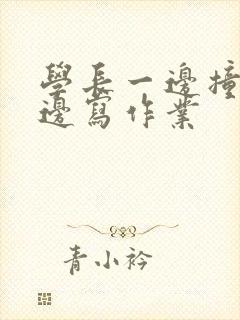 學長一邊撞
邊寫作業
青小衿